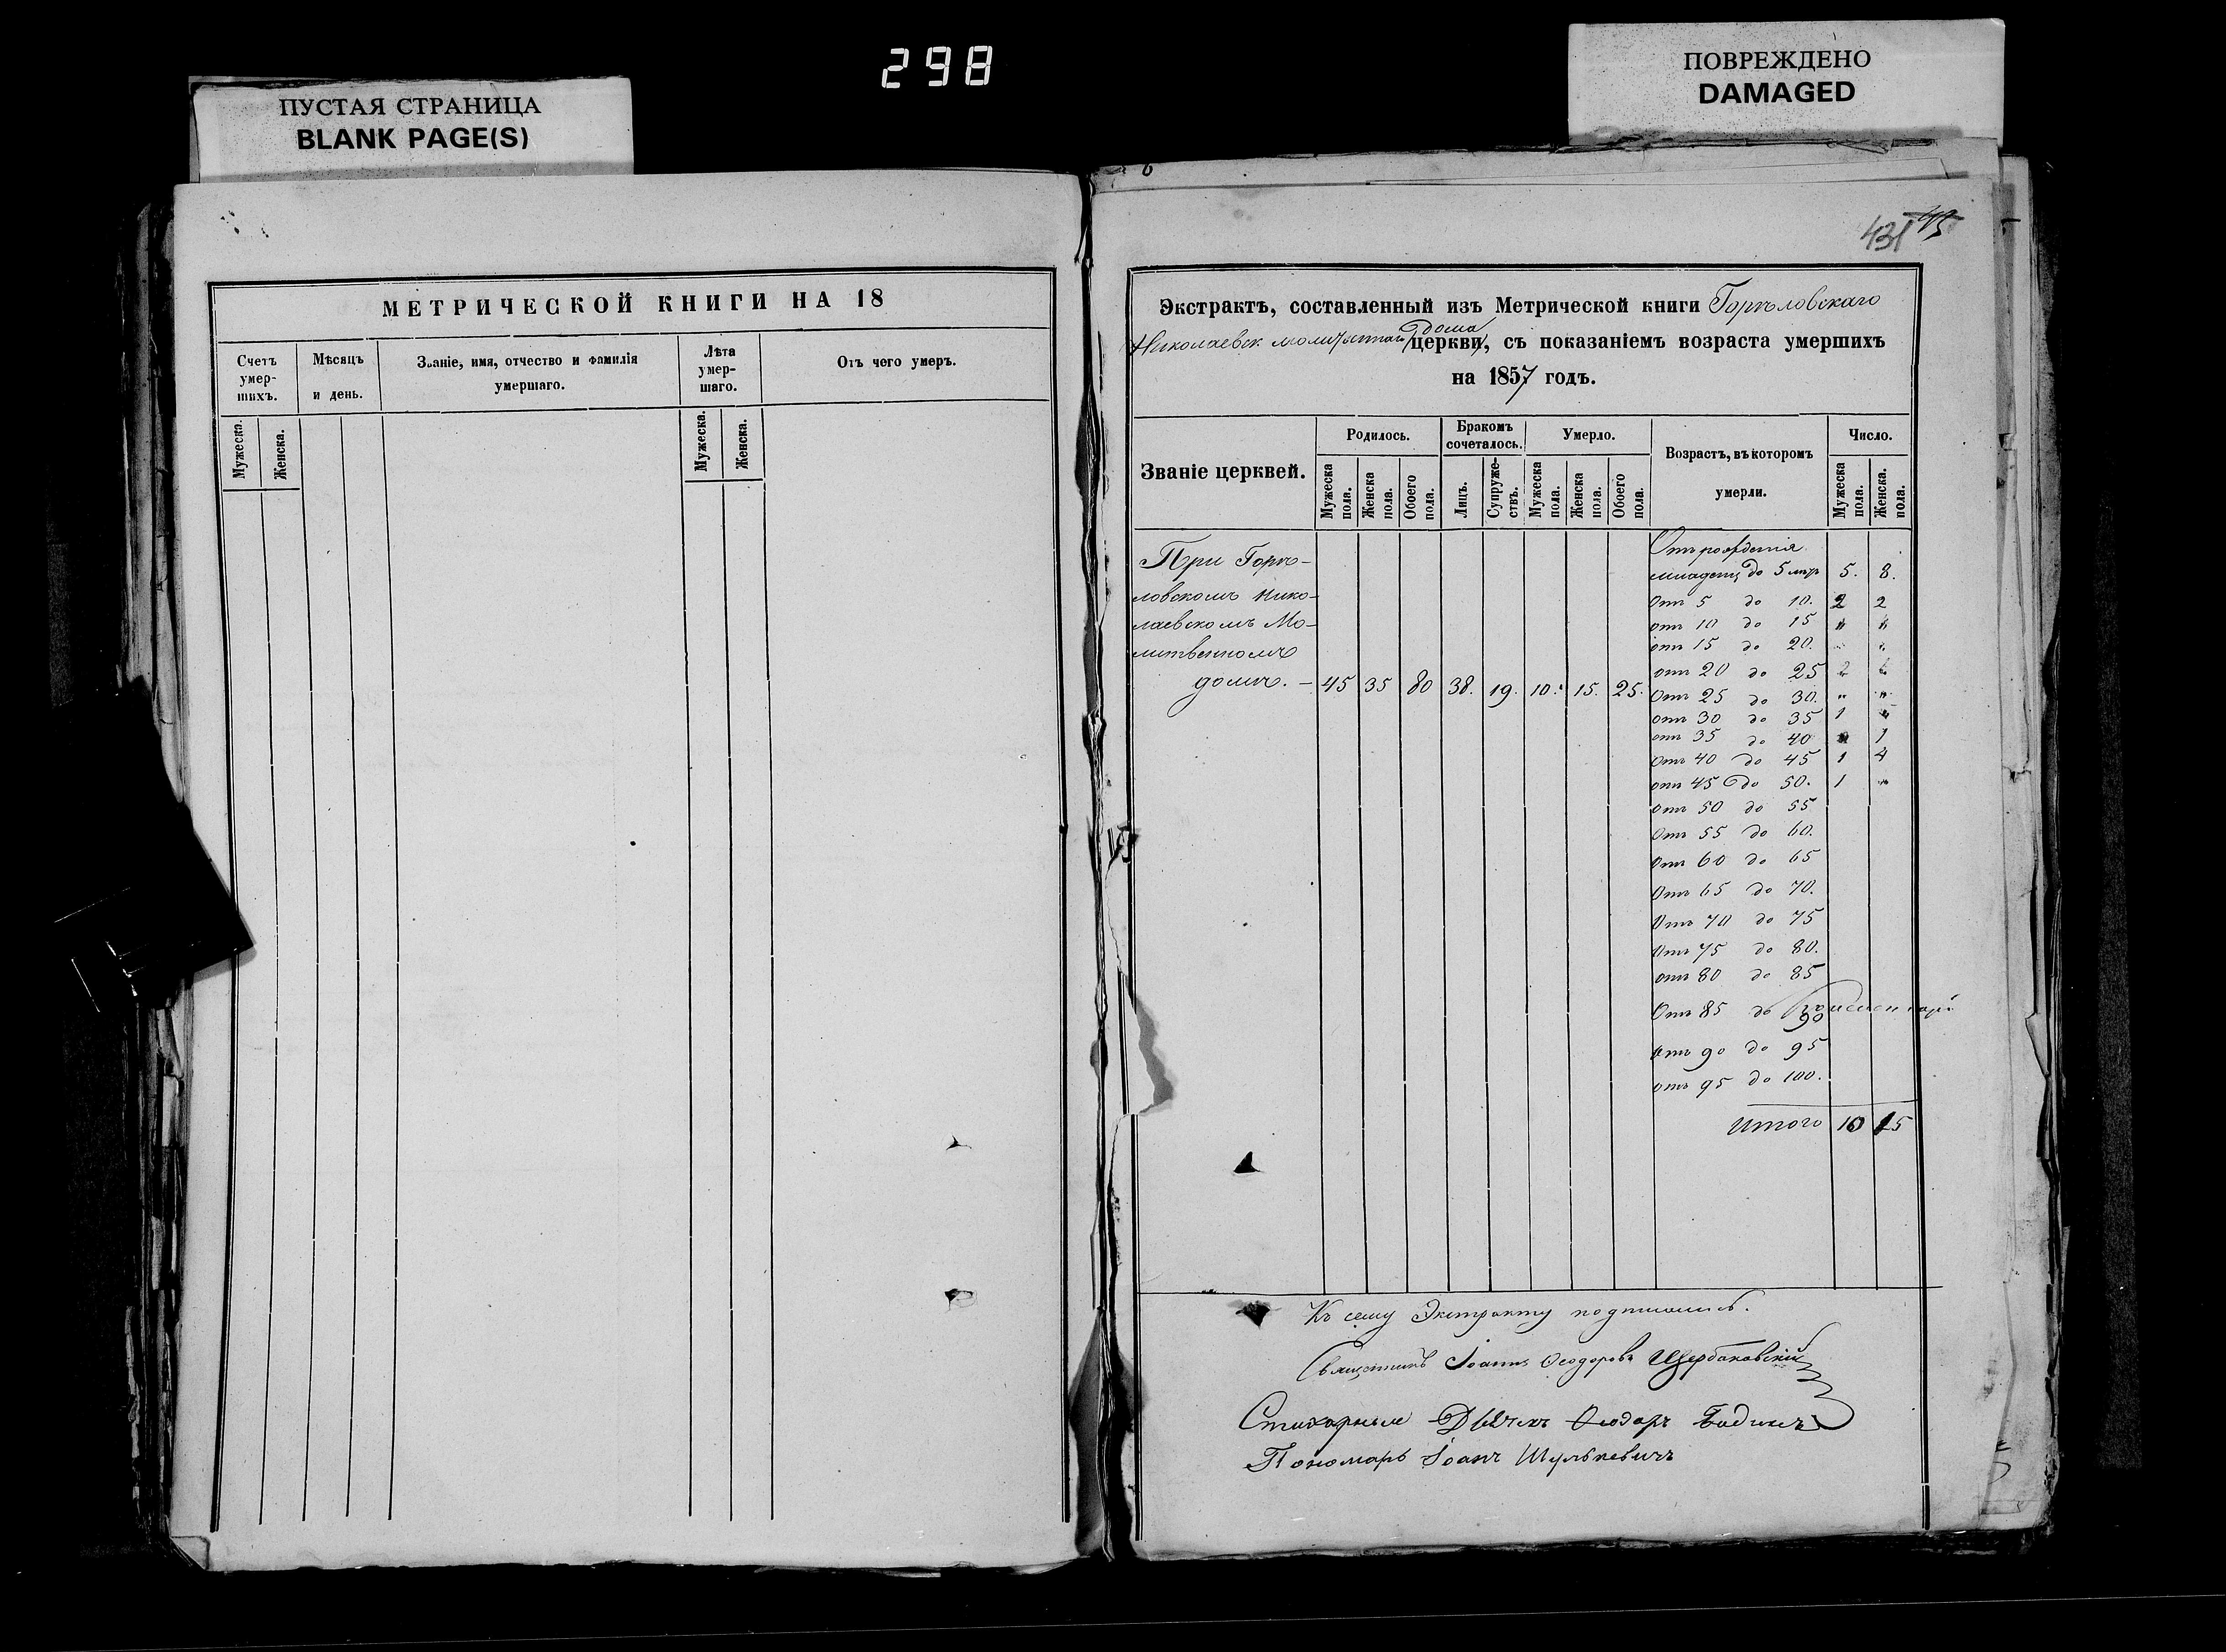 298
ПУСТАЯ СТРАНИЦА
BLANK PAGE(S)
ПОВРЕЖДЕНО
DAMAGED
МЕТРИЧЕСКОЙ КНИГИ НА 18
Счетъ умер-шихъ.
Мѣсяцъ и день.
Званіе, имя, отчество и фамилія умершаго.
Лѣта умер-шаго.
Отъ чего умеръ.
Мужеска.
Женска.
Мужеска.
Женска.
431
Экстрактъ, составленный изъ Метрической книги Горѣловскаго
дома
Николаевск молитвеннаго церкви, съ показаніемъ возраста умершихъ
на 1857 годъ.
Званіе церквей.
Родилось.
Бракомъ сочеталось.
Умерло.
Возрастъ, въ которомъ умерли.
Число.
Мужеска пола.
Женска пола.
Обоего пола.
Лицъ.
Супруже-ствъ.
Мужеска пола.
Женска пола.
Обоего пола.
Мужеска пола.
Женска. пола.
При Горѣ-
ловскомъ Нико-
лаевскомъ Мо-
литвенномъ
домѣ. - 45 35 80 38. 19. 10. 15. 25.
Отъ рожденія
младенц до 5 лѣтъ 5. 8.
Отъ 5 до 10. 2 2
отъ 10 до 15 " "
отъ 15 до 20. " "
отъ 20 до 25
Отъ 25 до 30. " "
отъ 30 до 35 1 "
отъ 35 до 40 " 1
Отъ 40 до 45 1 4
отъ 45 до 50. 1 "
отъ 50 до 55
Отъ 55 до 60.
Отъ 60 до 65
Отъ 65 до 70.
Отъ 70 до 75
Отъ 75 до 80.
отъ 80 до 85
Отъ 85 до 90
отъ 90 до 95
отъ 95 до 100.
Итого 10 15
Къ сему Экстракту подписались.
Священникъ Іоаннъ Ѳеодоровъ Щербаковскій
Стихарные Дьячекъ Ѳеодоръ
Пономарь Іоанъ Шулькевичъ